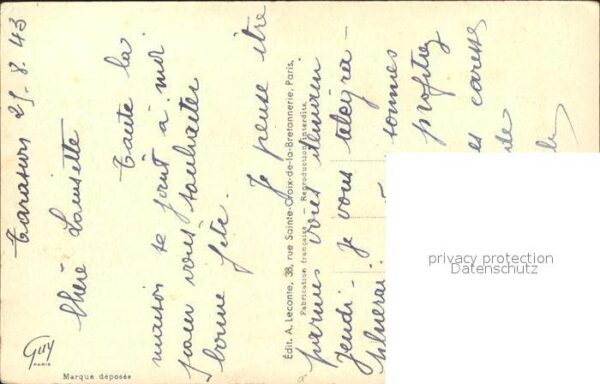 Tarascon 25.8.43
Chère Louisette
Toute la
maison se joint à moi
pour vous souhaiter
bonne fête.
Je pense être
parmi vous
Jeudi - je vous télégra-
phierai.
sommes
profitez
caresses
Édit. A. Leconte, 38, rue Sainte-Croix-de-la-Bretonnerie, Paris.
Fabrication française. — Reproduction interdite.
Guy
PARIS
Marque déposée
privacy protection
Datenschutz